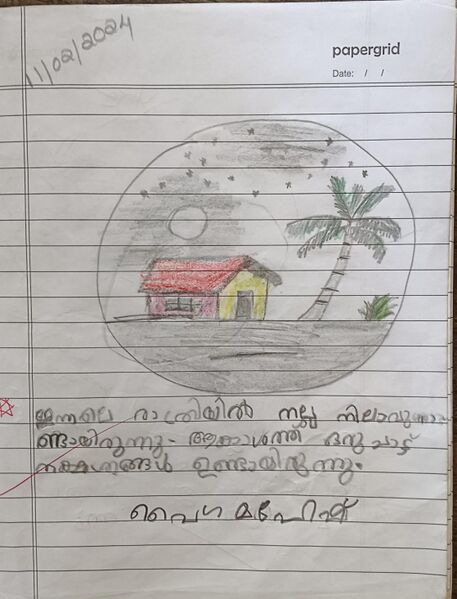 11/02/2024
papergrid
Date: / /
ഇന്നലെ രാത്രിയിൽ നല്ല നിലാവുണ്ടാ
ണ്ടായിരുന്നു- ആകാശത്ത് ഒരുപാട്
നക്ഷത്രങ്ങൾ ഉണ്ടായിരുന്നു.
വൈഗ മഹേഷ്